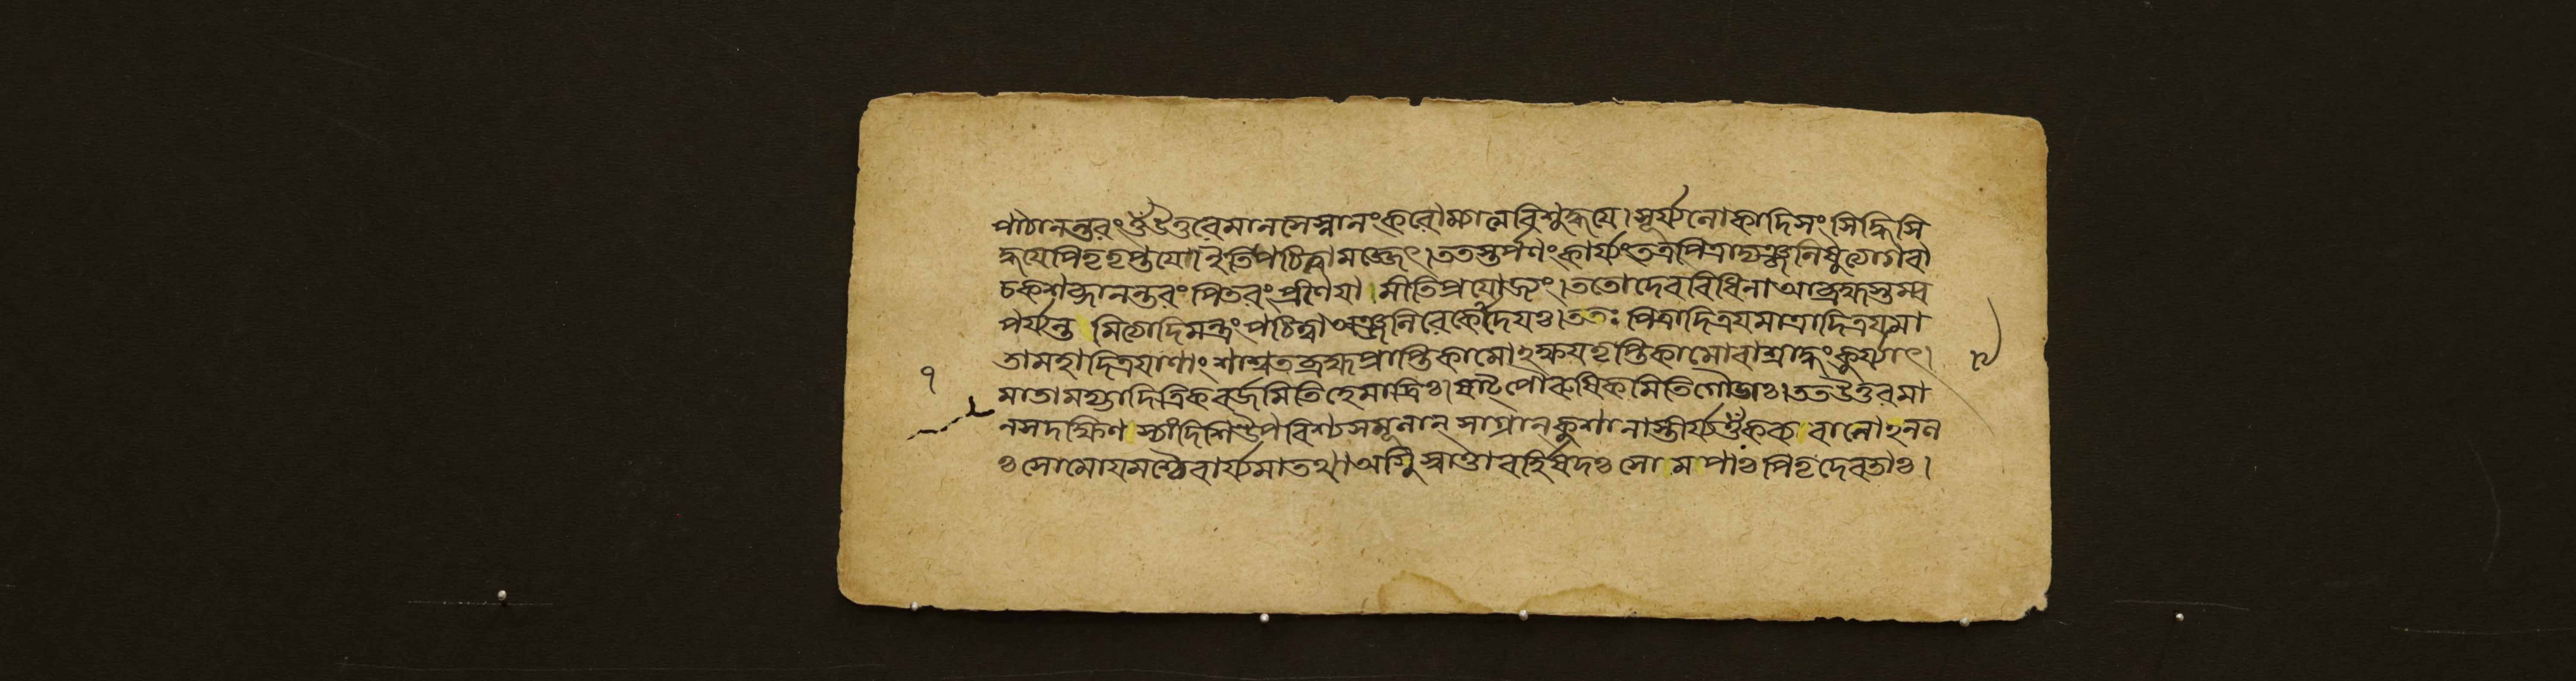 পাঠানন্তরং ওঁ উত্তরে মানসে স্নানং করোম্যাত্মবিশুদ্ধয়ে। সূর্য্যলোকাদিসংসিদ্ধিসি
দ্ধয়ে পিতৃতৃপ্তয়ে। ইতি পঠিত্বা মজ্জেৎ। ততস্তর্পণং কার্য্যং তত্র পিত্রাদ্যঞ্জলিষু গোগবা
চকশব্দানন্তরং পিতরং প্রীণয়ামীতি প্রযোজ্যং। ততো দেববিধিনা আব্রহ্মস্তম্ব
পর্য্যন্ত মিত্যাদিমন্ত্রং পঠিত্বা অঞ্জলিরেকো দেয়ঃ। ততঃ পিত্রাদিত্রয়মাত্রাদিত্রয়মা
তামহাদিত্রয়াণাং শাশ্বতব্রহ্মপ্রাপ্তিকামোঽক্ষয়তৃপ্তিকামো বা শ্রাদ্ধং কুর্য্যাৎ।
৭
মাতামহ্যাদিত্রিকবর্জমিতি হেমাদ্রিঃ। ষাট্পৌরুষিকমিতি গৌড়াঃ। তত উত্তরমা
নসদক্ষিণ স্যাং দিশি উপবিশ্য সমূলান্ সাগ্রান্ কুশানাস্তীর্য্য ওঁ কব্যবালোঽনল
ঃ সোমো যমশ্চৈবার্য্যমা তথা। অগ্নিস্বাত্তা বর্হিষদঃ সোমপাঃ পিতৃদেবতাঃ।